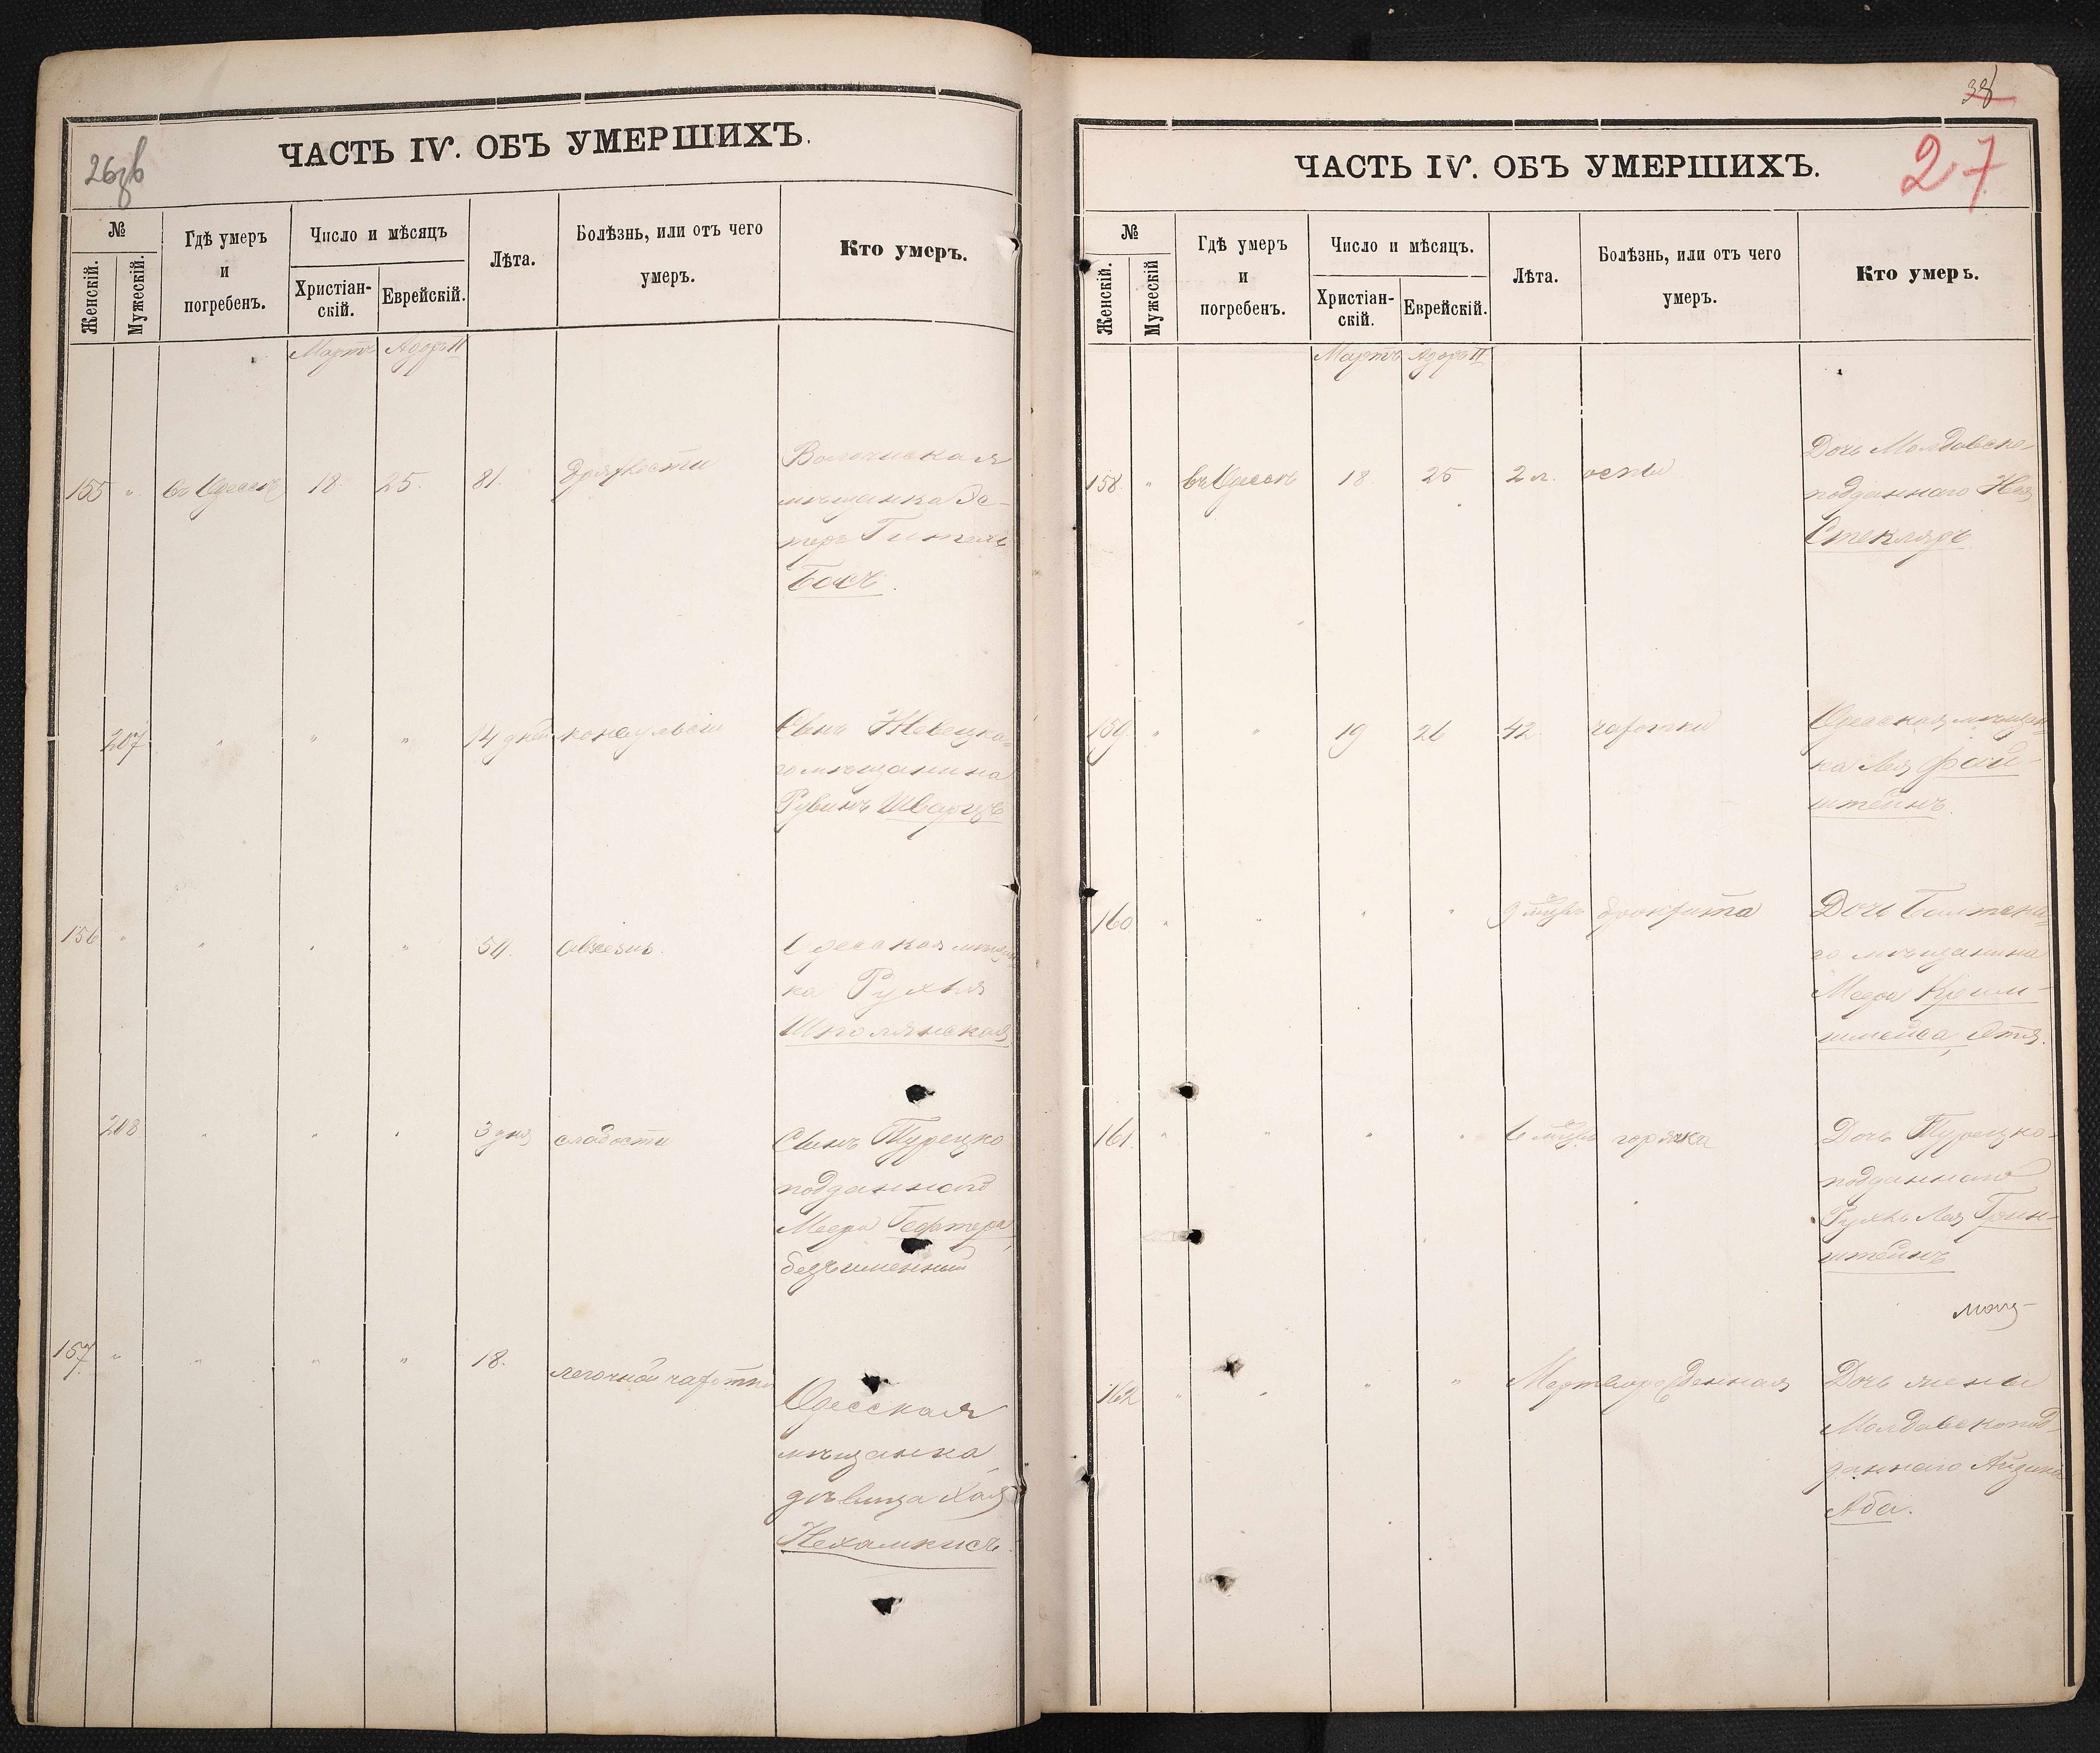 26зв
ЧАСТЬ IV. ОБЪ УМЕРШИХЪ.
№
Женскій.
Мужескій.
Гдѣ умеръ
и
погребенъ.
Число и мѣсяцъ
Христіан-
скій.
Еврейскій.
Лѣта.
Болѣзнь, или отъ чего
умеръ.
Кто умеръ.
Мартъ Адоръ II
155 " въ Одессѣ 18. 25. 81. дряхлости
Волочиская
мѣщанка Эс-
теръ Гитель
Босъ.
207 " " " 14 дней конвульсіи
Сынъ
го мѣщанина
Рувинъ Шварцъ
156 " " " " 54.
Одесская мѣщан-
ка Рухля
Шполянская
208 " " " 3 дня слабости
Сынъ Турецко
подданнаго
Меера Гефтера,
безъименный
157 " " " " 18. легочной чахотки
Одесская
мѣщанка,
дѣвица Хая
Нехамкисъ.
38
27
ЧАСТЬ IV. ОБЪ УМЕРШИХЪ.
№
Женскій.
Мужескій
Гдѣ умеръ
и
погребенъ.
Число и мѣсяцъ.
Христіан-
скій.
Еврейскій.
Лѣта.
Болѣзнь, или отъ чего
умеръ.
Кто умеръ.
Мартъ Адоръ II
158. " въ Одессѣ 18. 25 2 л. оспы
Дочь Молдавско-
подданнаго
Стекляръ
159. " " 19 26 42. чахотки
Одесская мѣщан-
ка Лея Фай-
штейнъ.
160 " " " " 9 мѣсц. бронхита
Дочь Балтска-
го мѣщанина
Меера
Этя.
161. " " " " 6 мѣсц. горячка
Дочь Турецко-
подданнаго
Рухль Лея Грин-
штейнъ
162 " " " " Мертворожденная
Дочь жены
Молдавскопод-
даннаго
Аба.